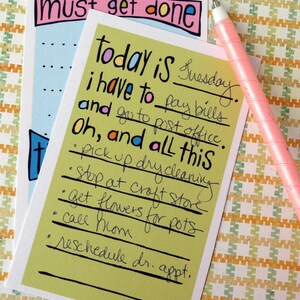 must get done
today is Tuesday.
i have to pay bills
and go to post office.
Oh, and all this
• pick up dry cleaning
• stop at craft store
• get flowers for pots
• call mom
• reschedule dr. appt.